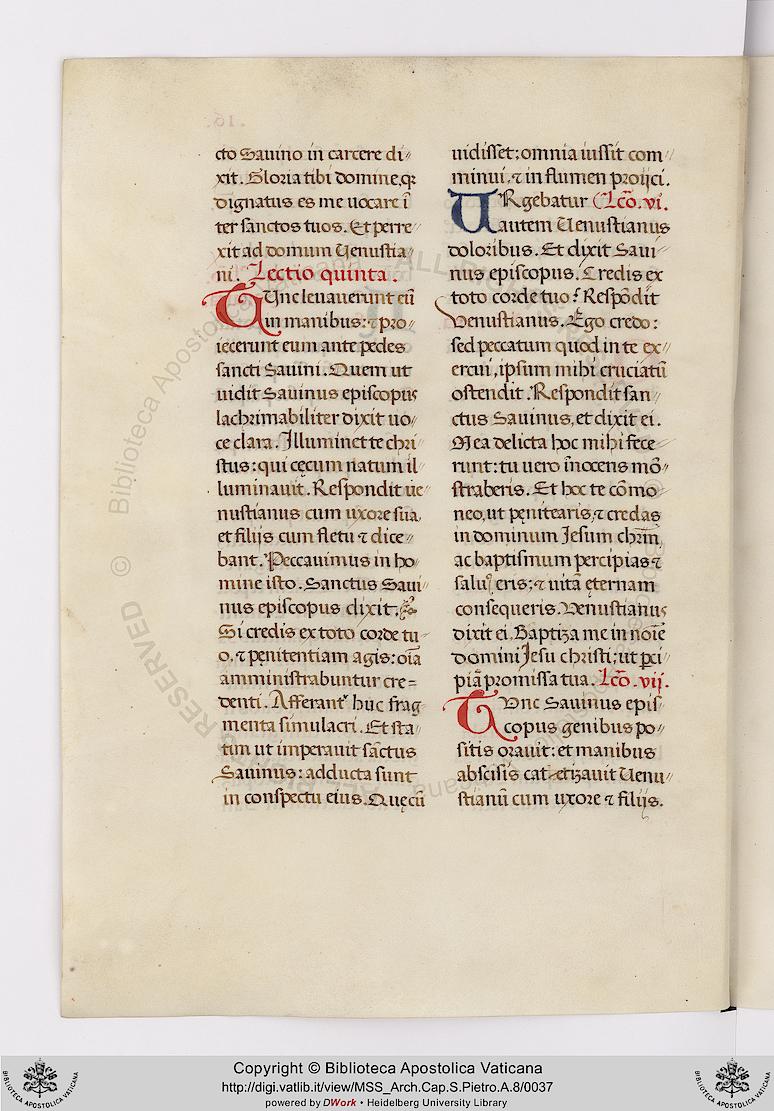 cto Sauino in carcere di//
xit. Gloria tibi domine, q
dignatus es me uocare ĩ
ter sanctos tuos. Et perre//
xit ad domum Uenustia//
ni. Lectio quinta.
TUnc leuauerunt eũ
in manibus: ⁊ pro//
iecerunt eum ante pedes
sancti Sauini. Quem ut
uidit Sauinus episcopus
lachrimabiliter dixit uo//
ce clara. Illuminet te chri//
stus: qui cęcum natum il//
luminauit. Respondit ue//
nustianus cum uxore sua,
et filijs cum fletu ⁊ dice//
bant. Peccauimus in ho//
mine isto. Sanctus Saui//
nus episcopus dixit.
Si credis ex toto corde tu//
o, ⁊ pęnitentiam agis: oĩa
amministrabuntur cre=
denti. Afferant᷑ huc frag//
menta simulacri. Et sta//
tim ut imperauit sãctus
Sauinus: adducta sunt
in conspectu eius. Quę cũ
uidisset; omnia iussit com//
minui, ⁊ in flumen proijci.
URgebatur Lcõ. vi.
autem Uenustianus
doloribus. Et dixit Saui//
nus episcopus. Credis ex
toto corde tuo? Respõdit
Venustianus. Ego credo:
sed peccatum quod in te ex//
ercui, ipsum mihi cruciatũ
ostendit. Respondit san//
ctus Sauinus, et dixit ei.
Mea delicta hoc mihi fece//
runt: tu uero ĩnocens mõ//
straberis. Et hoc te cõmo//
neo, ut pęnitearis, ⁊ credas
in dominum Iesum chrĩm,
ac baptismum percipias ⁊
saluꝰ eris; ⁊ uitã ęternam
consequeris. Venustianus
dixit ei. Baptiza me in noĩe
domini Iesu christi; ut ꝑci//
piã promissa tua. Lcõ. vij.
TUnc Sauinus epis//
copus genibus po//
sitis orauit: et manibus
abscisis catætizauit Uenu//
stianũ cum uxore ⁊ filijs.
© Biblioteca Apostolica Vaticana ALL RIGHTS RESERVED
BIBLIOTECA APOSTOLICA VATICANA
Copyright © Biblioteca Apostolica Vaticana
http://digi.vatlib.it/view/MSS_Arch.Cap.S.Pietro.A.8/0037
powered by DWork • Heidelberg University Library
BIBLIOTECA APOSTOLICA VATICANA